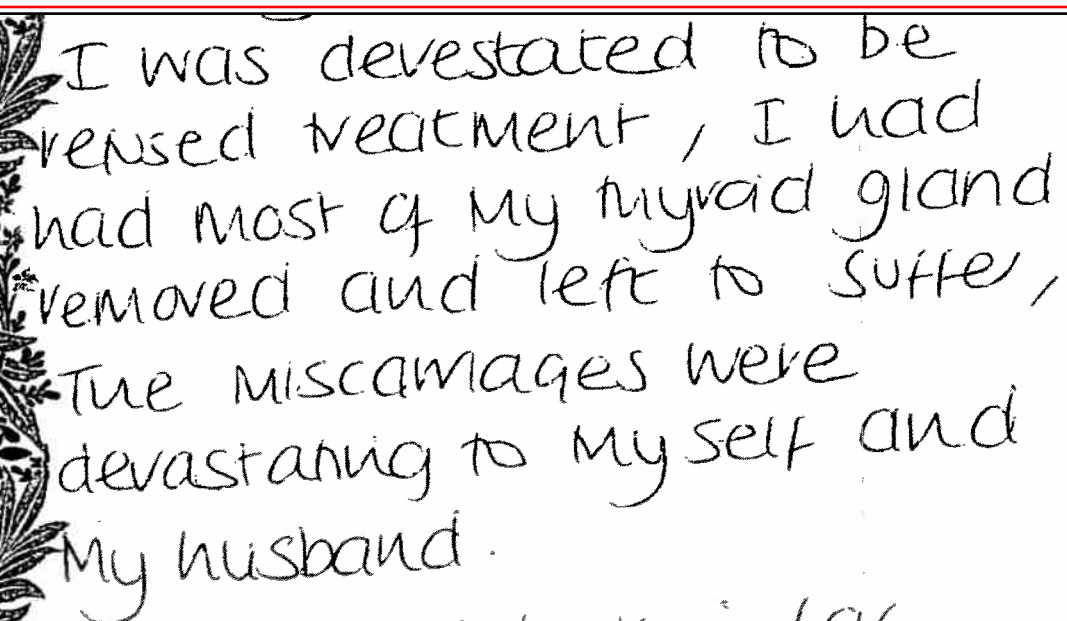 I was devestated to be
refused treatment, I had
had most of my thyroid gland
removed and left to suffer,
The miscarriages were
devastating to my self and
My husband.